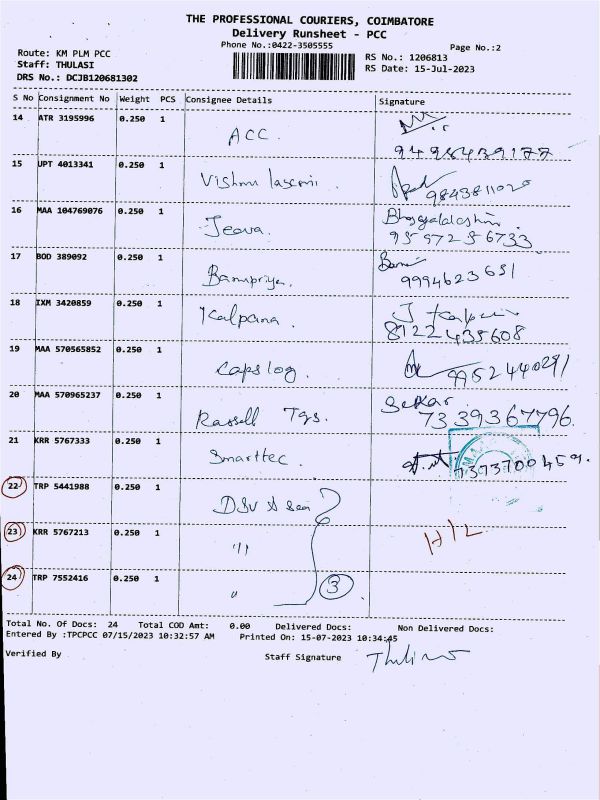 THE PROFESSIONAL COURIERS, COIMBATORE
Delivery Runsheet - PCC
Phone No.:0422-3505555
Page No.:2
Route: KM PLM PCC
RS No.: 1206813
Staff: THULASI
RS Date: 15-Jul-2023
DRS No.: DCJB120681302
S No Consignment No Weight PCS Consignee Details Signature
14 ATR 3195996 0.250 1 ACC.
15 UPT 4013341 0.250 1 Vishnu laxmi. 9843811020
16 MAA 104769076 0.250 1 Jeova.
9597256733
17 BOD 389092 0.250 1 Banupriya. 9994623651
18 IXM 3420859 0.250 1 Kalpana. J Kalpana
8122435608
19 MAA 570565852 0.250 1 Capslog. 9952440291
20 MAA 570965237 0.250 1 Rassell Tgs. Sekar
7339367796.
21 KRR 5767333 0.250 1 Smarttec. 7373700459.
22 TRP 5441988 0.250 1 DSV
23 KRR 5767213 0.250 1 "
24 TRP 7552416 0.250 1 " 3
Total No. Of Docs: 24 Total COD Amt: 0.00 Delivered Docs: Non Delivered Docs:
Entered By :TPCPCC 07/15/2023 10:32:57 AM Printed On: 15-07-2023 10:34:45
Verified By Staff Signature